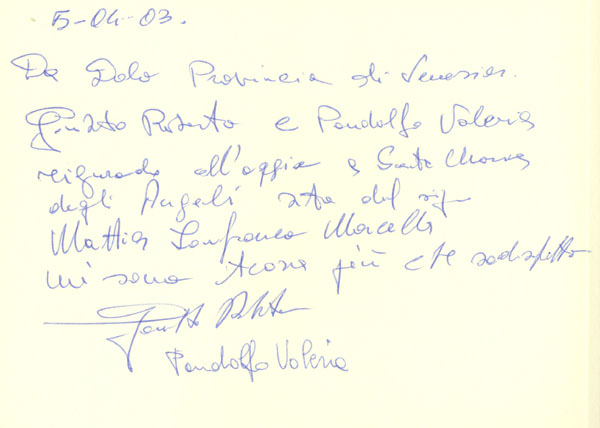 5-04-03.
Da Dolo Provincia di Venezia.
Roberto e Pandolfo Valeria
riguardo all'oggia a Santa
degli Angeli sta del sig
Mattia Lanfranco Morcelli
mi sono più che sodisfatto
Pandolfo Valeria